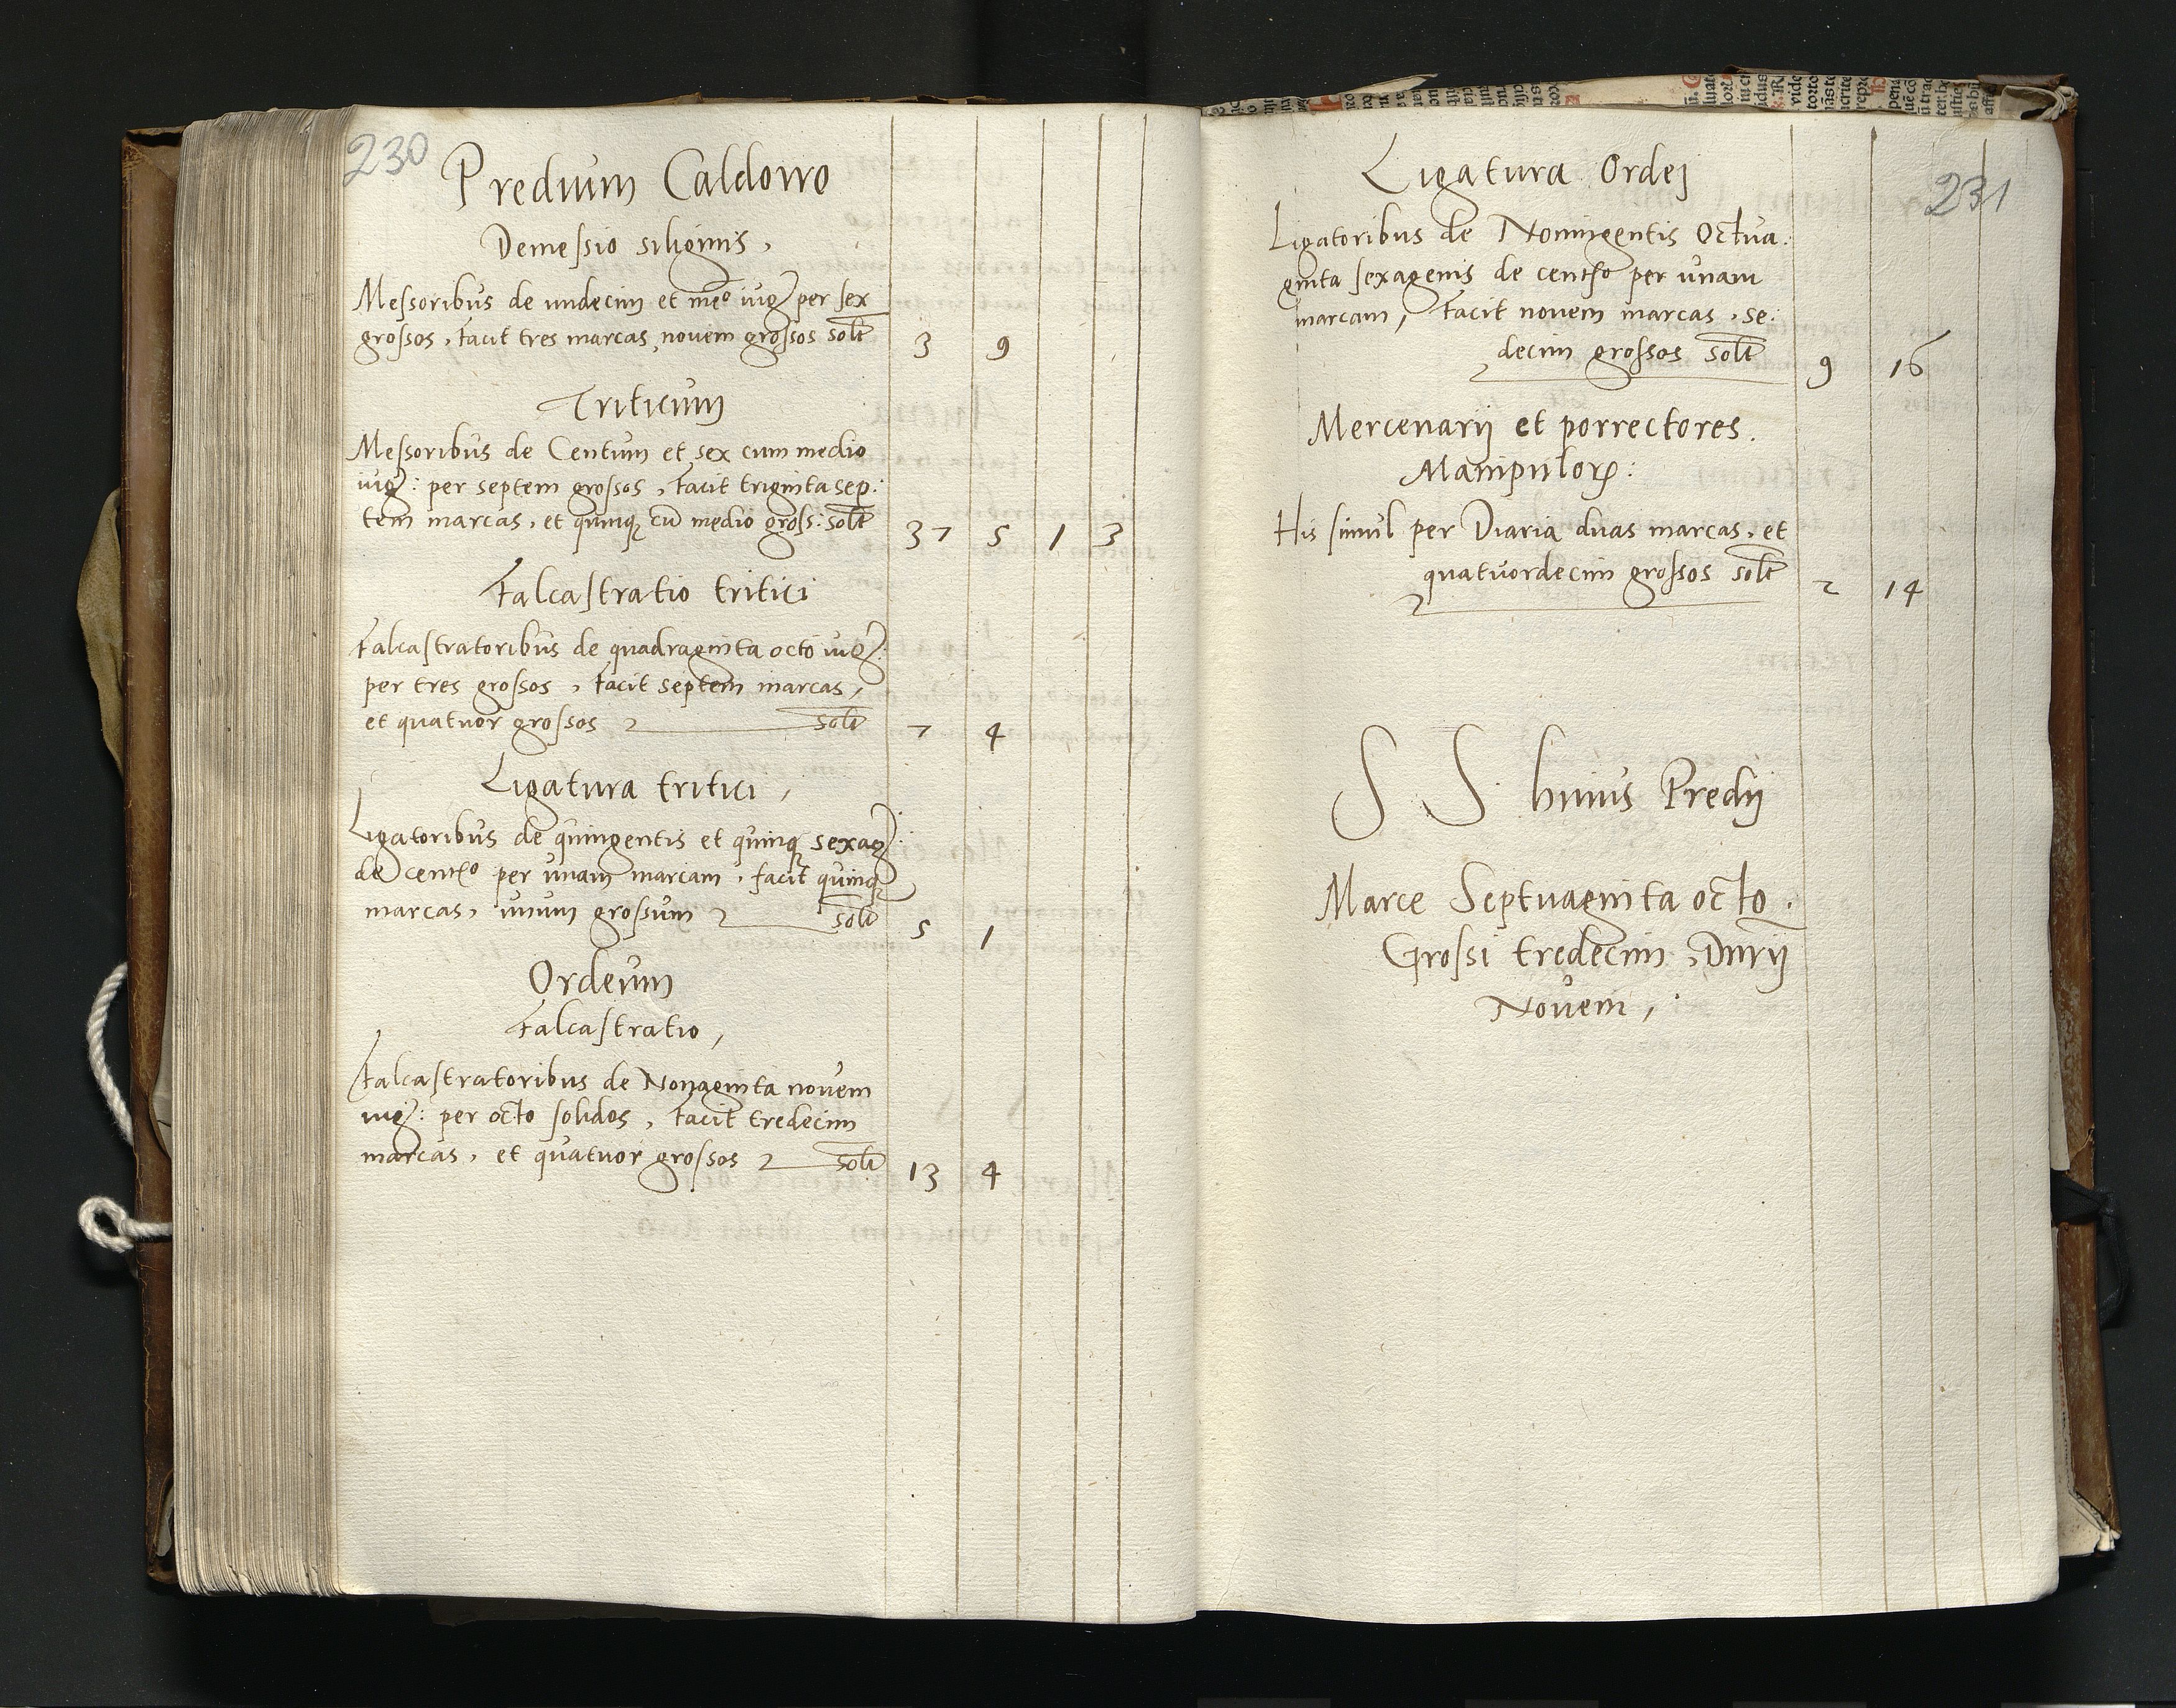 230
Predium Caldowo
Demessio siliginis,
Messoribus de undecim et med° iug: per sex
grossos, facit tres marcas, novem grossos solt 3 9
Triticum
Messoribus de Centum et sex cum medio
iug: per septem grossos, facit triginta sep:
tem marcas, et quinq cu medio gross: solt 37 5 1 3
Falcastratio tritici
Falcastratoribus de quadraginta octo iug:
per tres grossos, facit septem marcas,
et quatuor grossos solt 7 4
Ligatura tritici,
Ligatoribus de quingentis et quinq sexag:
de cento per unam marcam, facit quinq
marcas, unum grossum solt 5 1
Ordeum
Falcastratio,
Falcastratoribus de Nonaginta novem
iug: per octo solidos, facit tredecim
marcas, et quatuor grossos solt 13 4
231
Ligatura Ordej
Ligatoribus de Noningentis Octua:
ginta sexagenis de cento per unam
marcam, facit novem marcas, se:
decim grossos solt 9 16
Mercenarij et porrectores.
Manipulor:
His simul per Diaria duas marcas, et
quatuordecim grossos solt 2 14
S S huius Predij
Marce Septuaginta octo.
Grossi tredecim, Dnrij
Novem,